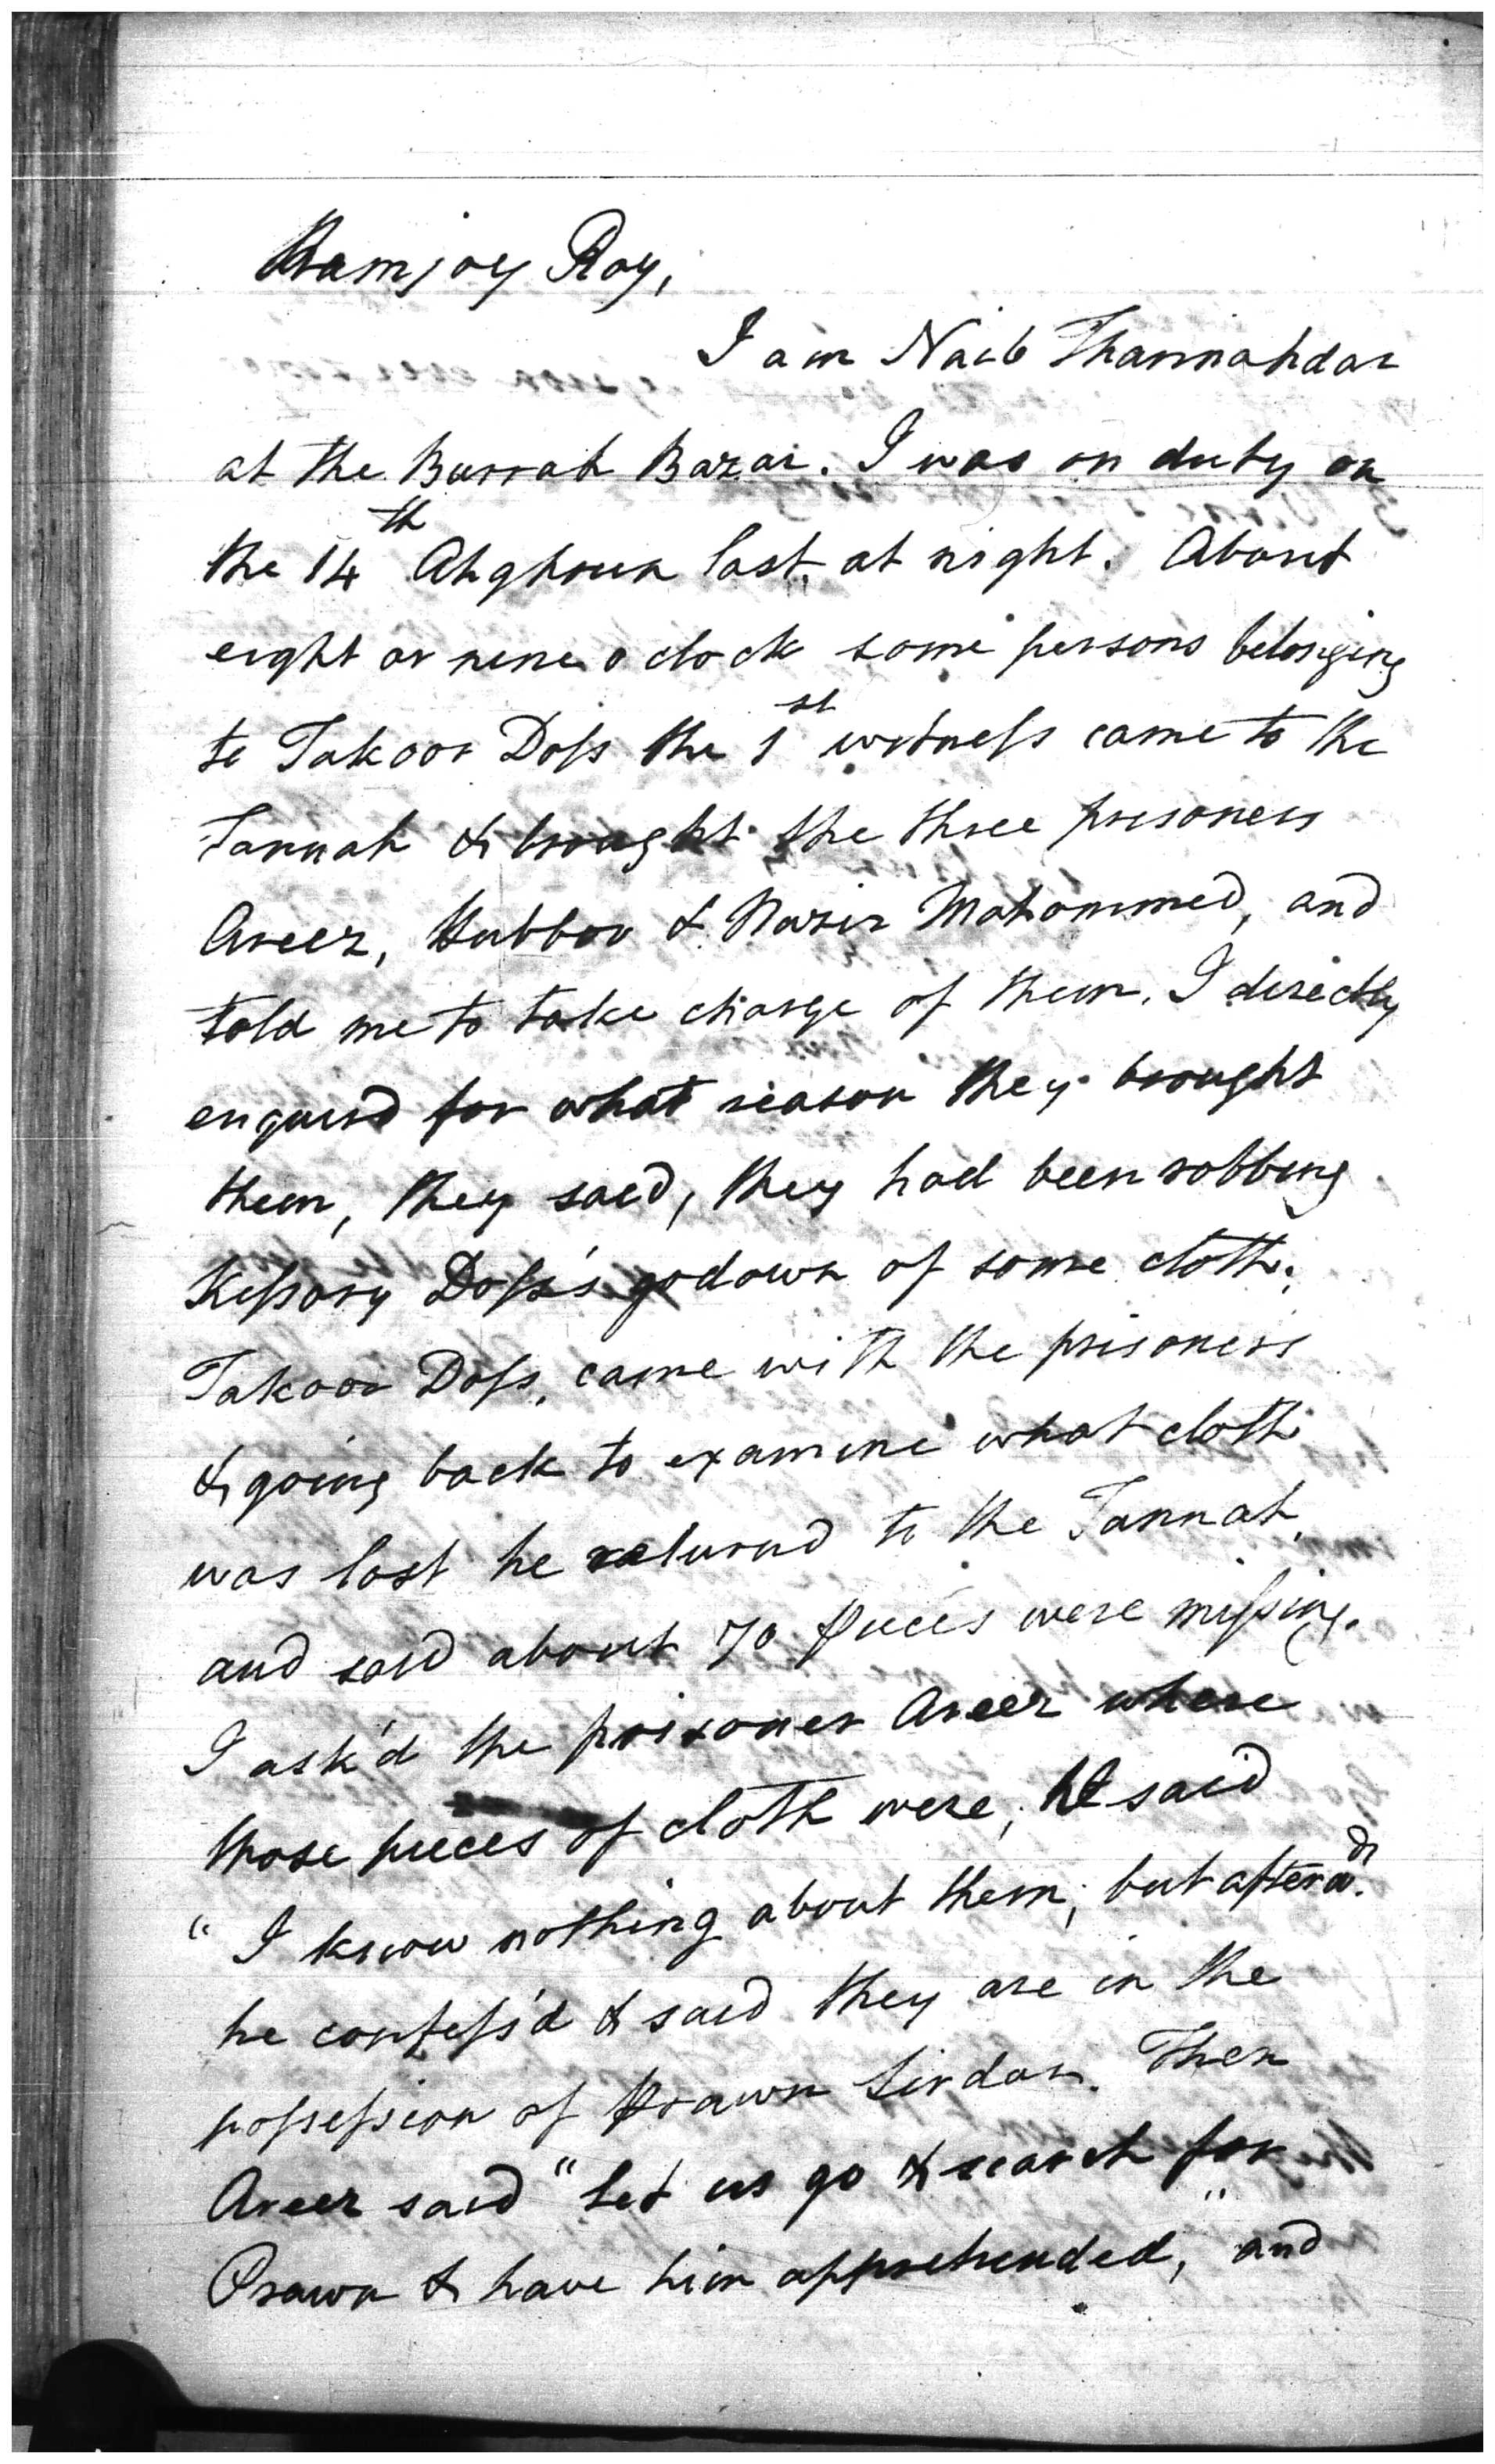 Ramjoy Roy,
I am Naib Thannahdar
at the Burrah Bazar. I was on duty on
the 14th Aghoun last at night. About
eight or nine o clock some persons belonging
to Takoor Doss the 1st witness came to the
Tannah & brought the three prisoners
Areez, Hubbou & Nazir Mahommed, and
told me to take charge of them. I directly
enquird for what reason they brought
them, they said, they had been robbing
Kessory Doss's godown of some cloth.
Takoor Doss, came with the prisoners
& going back to examine what cloth
was lost he returnd to the Tannah
and said about 70 pieces were missing.
I ask'd the prisoner Areez where
those pieces of cloth were, he said
"I know nothing about them, but afterwds.
he confess'd & said they are in the
possession of Prawn Sirdar. Then
Areez said "Let us go & search for
Prawn & have him apprehended," and